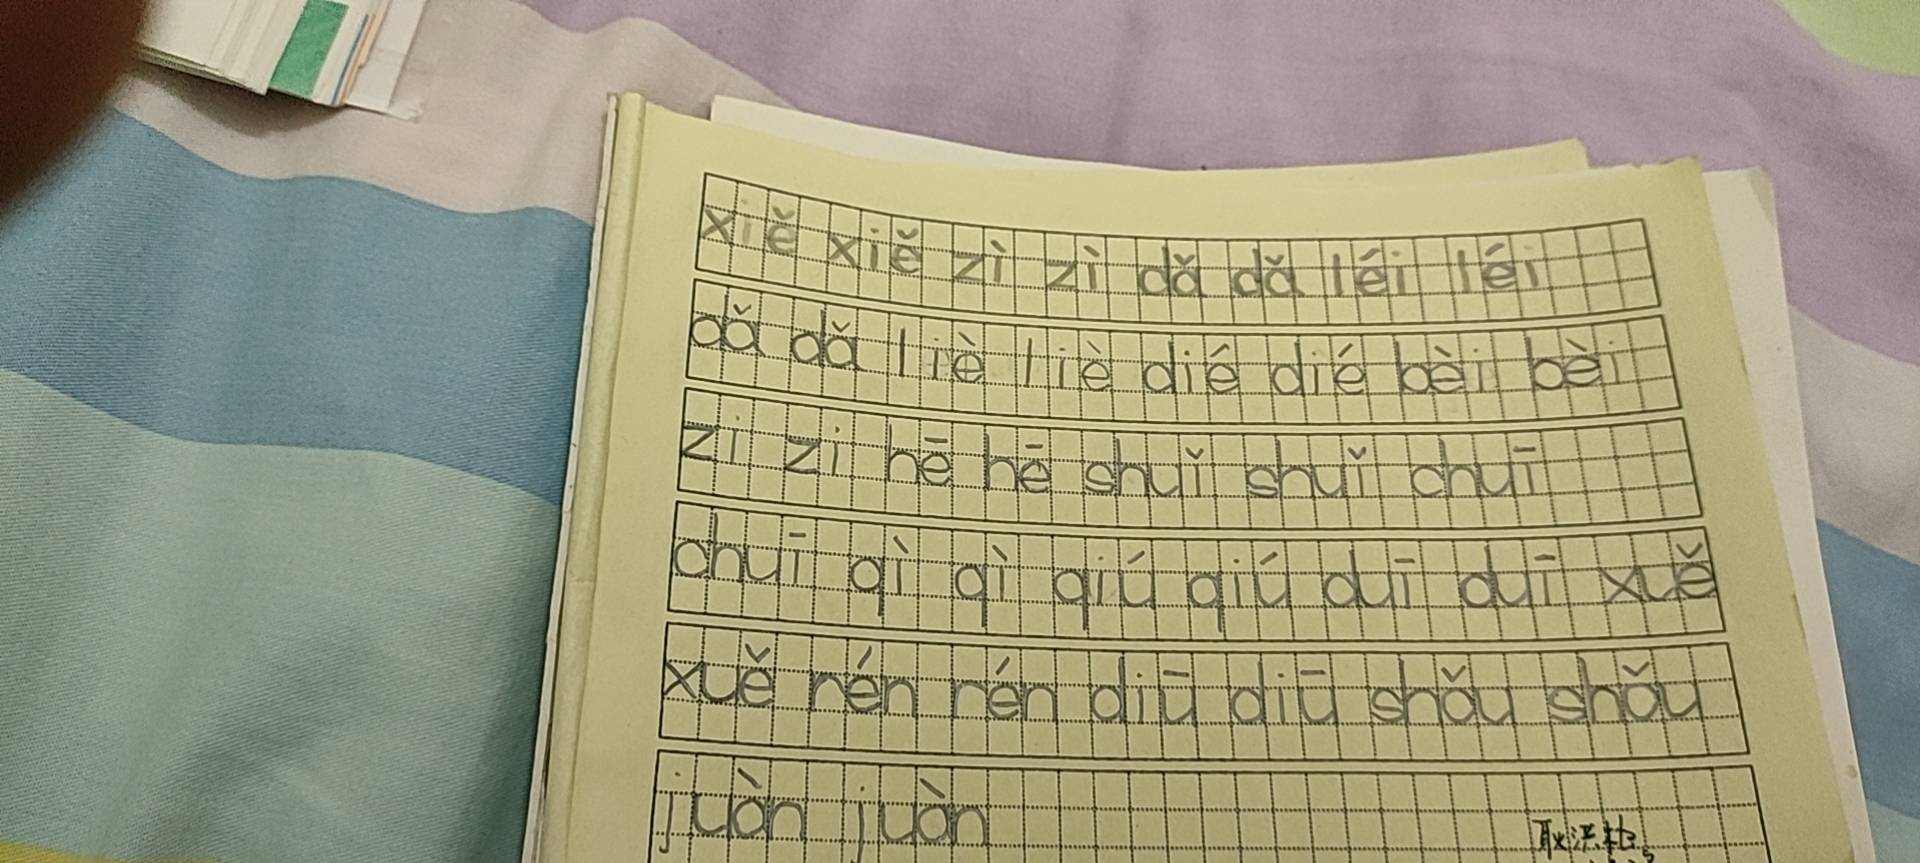 xiě xiě zì zì dǎ dǎ léi léi
dǎ dǎ liè liè dié dié bèi bèi
zi zi hē hē shuǐ shuǐ chuī
chuī qì qì qiú qiú duī duī xuě
xuě rén rén diū diū shǒu shǒu
juàn juàn